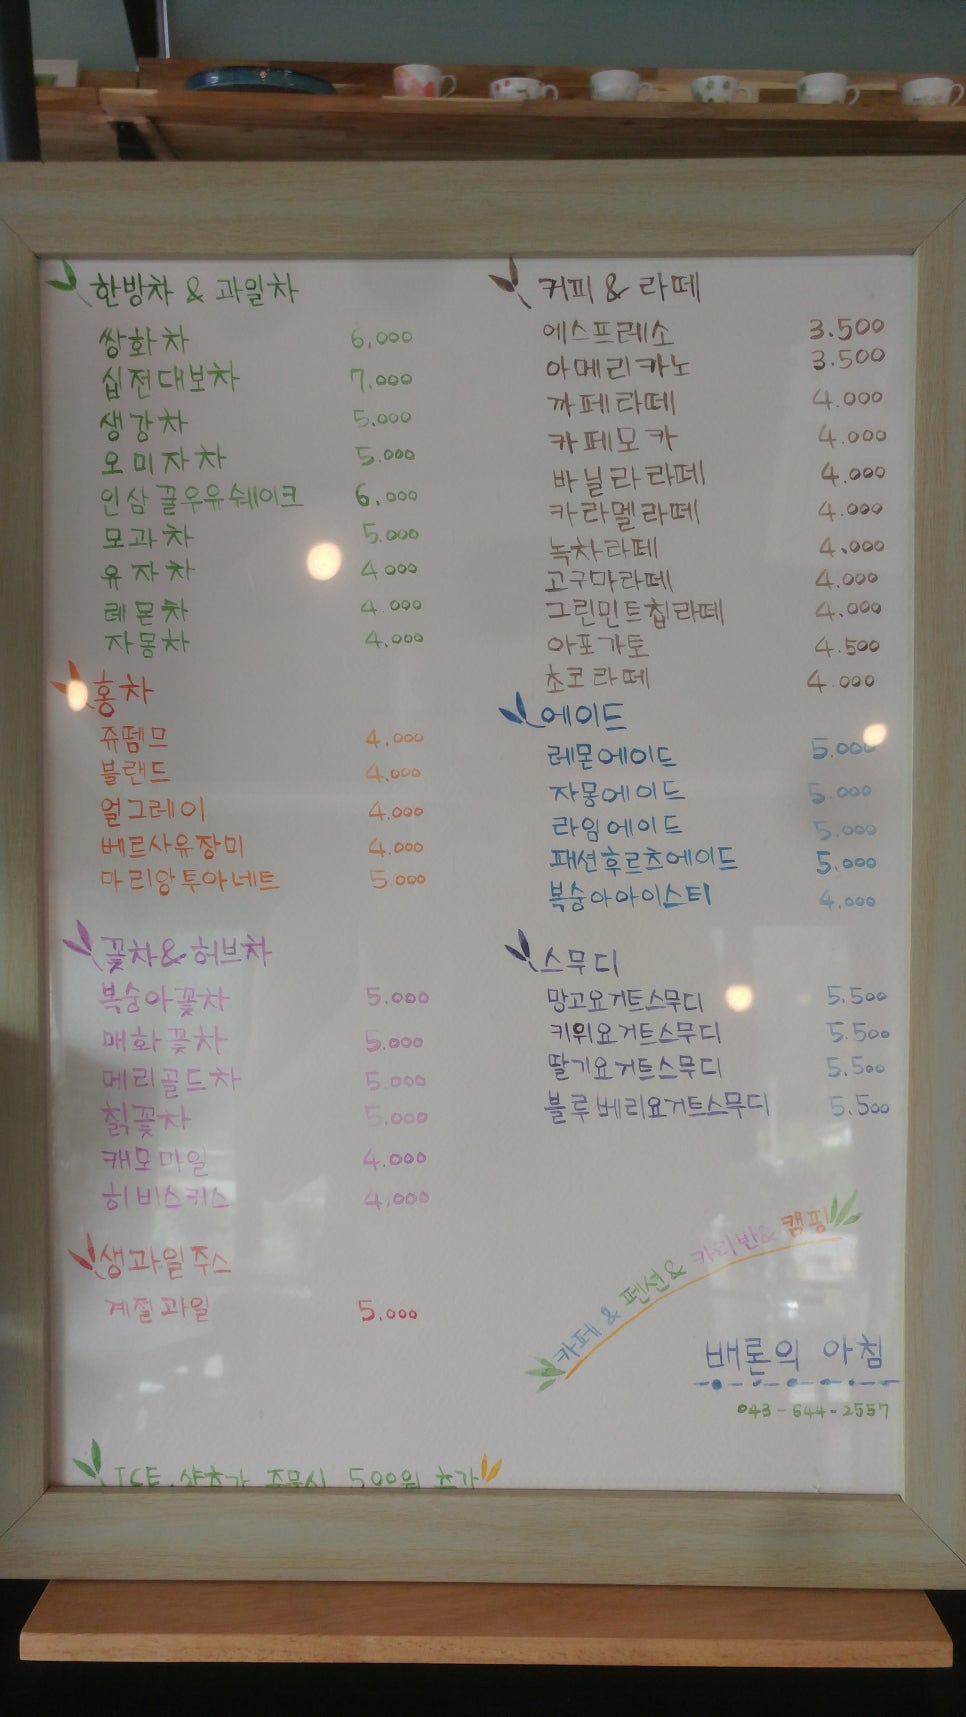 한방차 & 과일차
쌍화차 6,000
십전대보차 7,000
생강차 5,000
오미자차 5.000
인삼꿀우유쉐이크 6.000
모과차 5.000
유자차 4.000
레몬차 4.000
자몽차 4,000
홍차
쥬뗌므 4,000
블랜드 4,000
얼그레이 4.000
베르사유장미 4.000
마리앙투아네트 5.000
꽃차 & 허브차
복숭아꽃차 5.000
매화꽃차 5.000
메리골드차 5.000
칡꽃차 5,000
캐모마일 4.000
히비스커스 4,000
생과일주스
계절과일 5.000
ICE.샷추가 주문시 500원 추가
커피 & 라떼
에스프레소 3.500
아메리카노 3.500
까페라떼 4.000
카페모카 4.000
바닐라라떼 4.000
카라멜라떼 4.000
녹차라떼 4.000
고구마라떼 4.000
그린민트칩라떼 4.000
아포가토 4.500
초코라떼 4.000
에이드
레몬에이드 5.000
자몽에이드 5.000
라임에이드 5.000
패션후르츠에이드 5.000
복숭아아이스티 4,000
스무디
망고요거트스무디 5.500
키위요거트스무디 5.500
딸기요거트스무디 5.500
블루베리요거트스무디 5.500
카페 & 펜션 & 카라반 & 캠핑
배론의 아침
043-644-2557